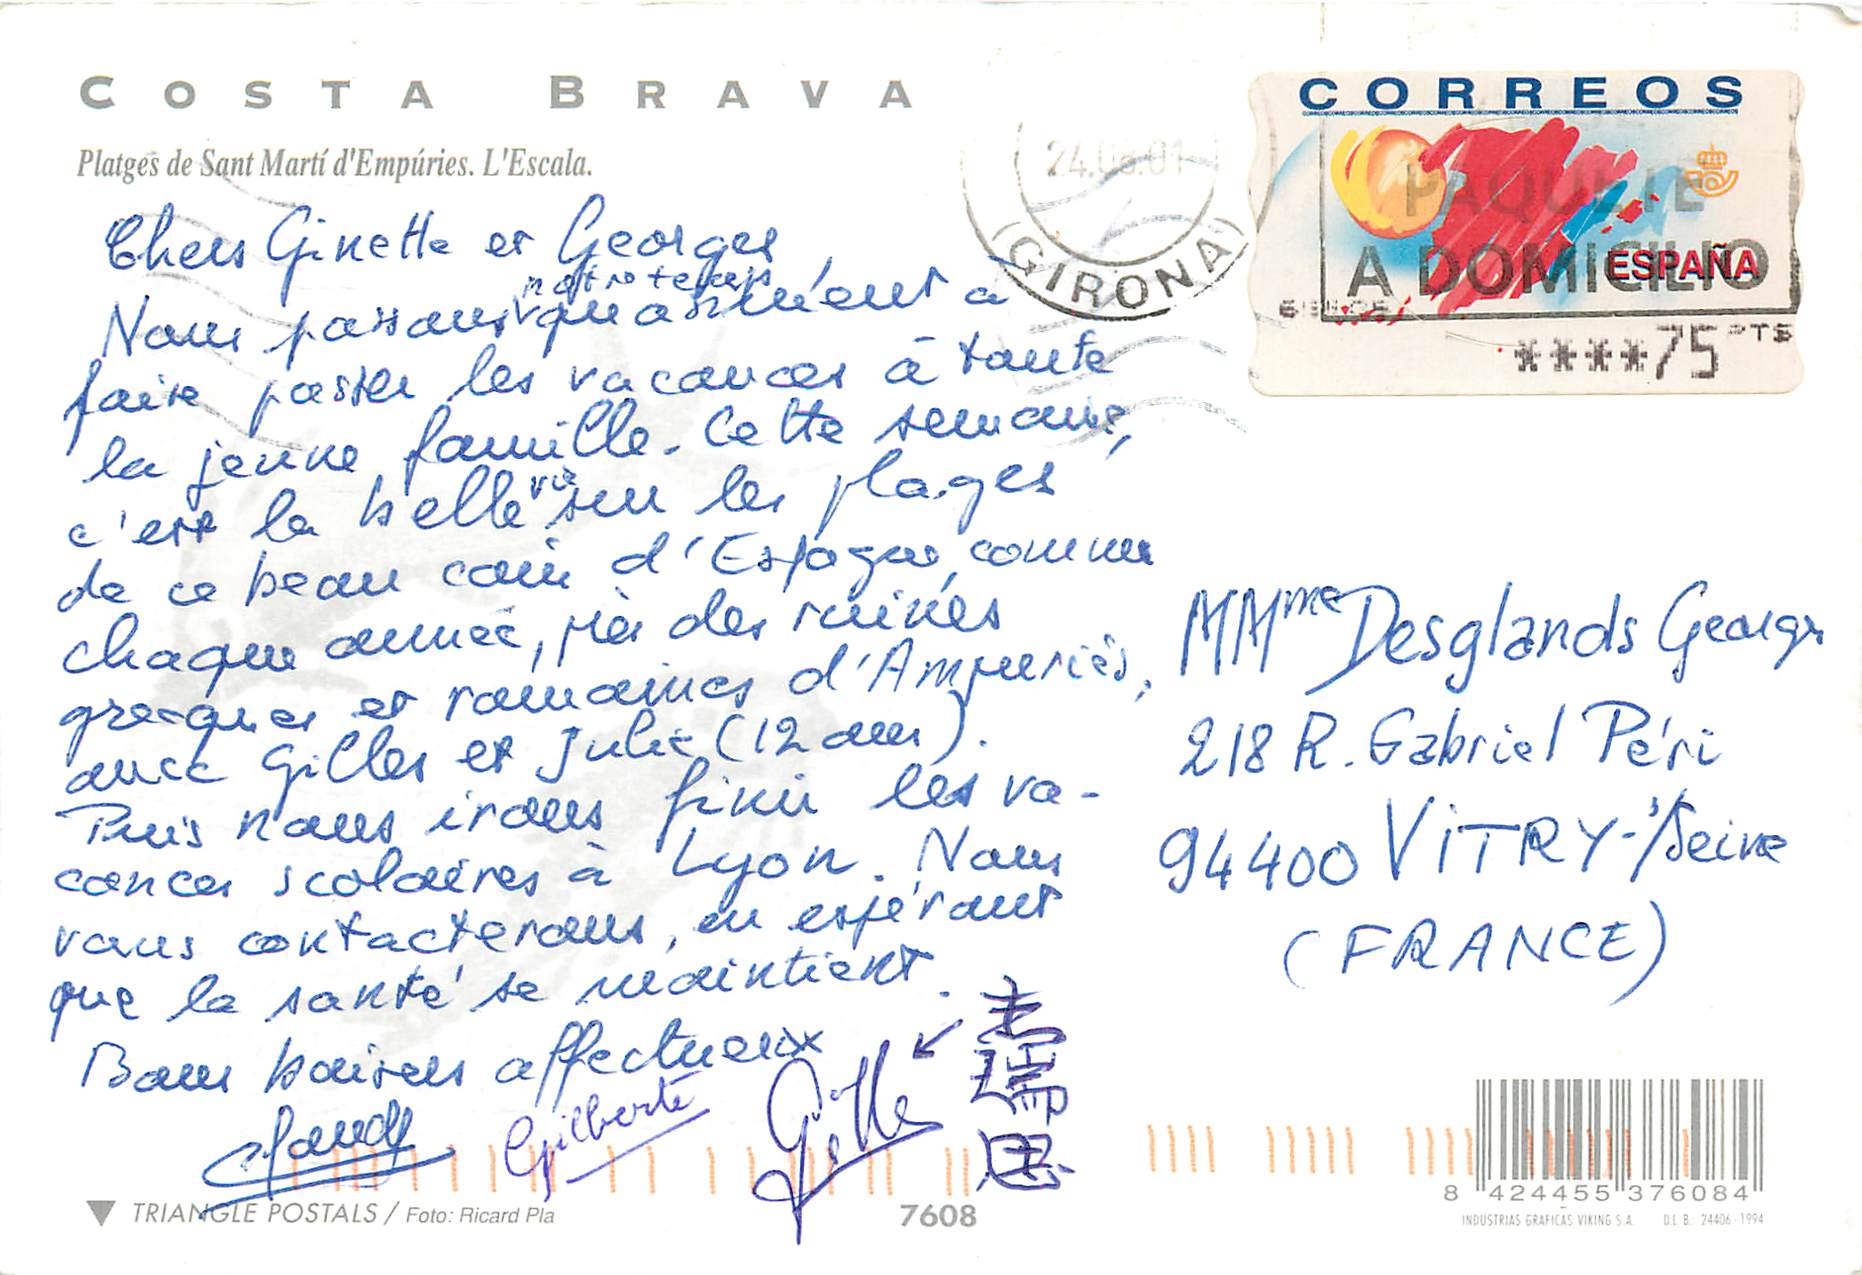 COSTA BRAVA
Platges de Sant Martí d'Empúries. L'Escala.
Chers Ginette et Georges
Nous passons notre temps quasiment a
faire passer les vacances à toute
la jeune famille. Cette semaine,
c'est la belle vie sur les plages
de ce beau coin d'Espagne, comme
chaque année, près des ruines
grecques et romaines d'Ampuriès,
avec Gilles et Julie (12 ans).
Puis nous irons finir les va-
cances scolaires à Lyon. Nous
vous contacterons, en espérant
que la santé se maintient.
Bons baisers affectueux
Gilberte
Gilles
吉
瑞
思
TRIANGLE POSTALS / Foto: Ricard Pla
7608
GIRONA
CORREOS
PAQUETE
A DOMICILIO
ESPAÑA
****75 PTS
M Mme Desglands Georges
218 R. Gabriel Péri
94400 VITRY-s/Seine
(FRANCE)
8 424455 376084
INDUSTRIAS GRAFICAS VIKING S.A. D.L.B. 24406-1994